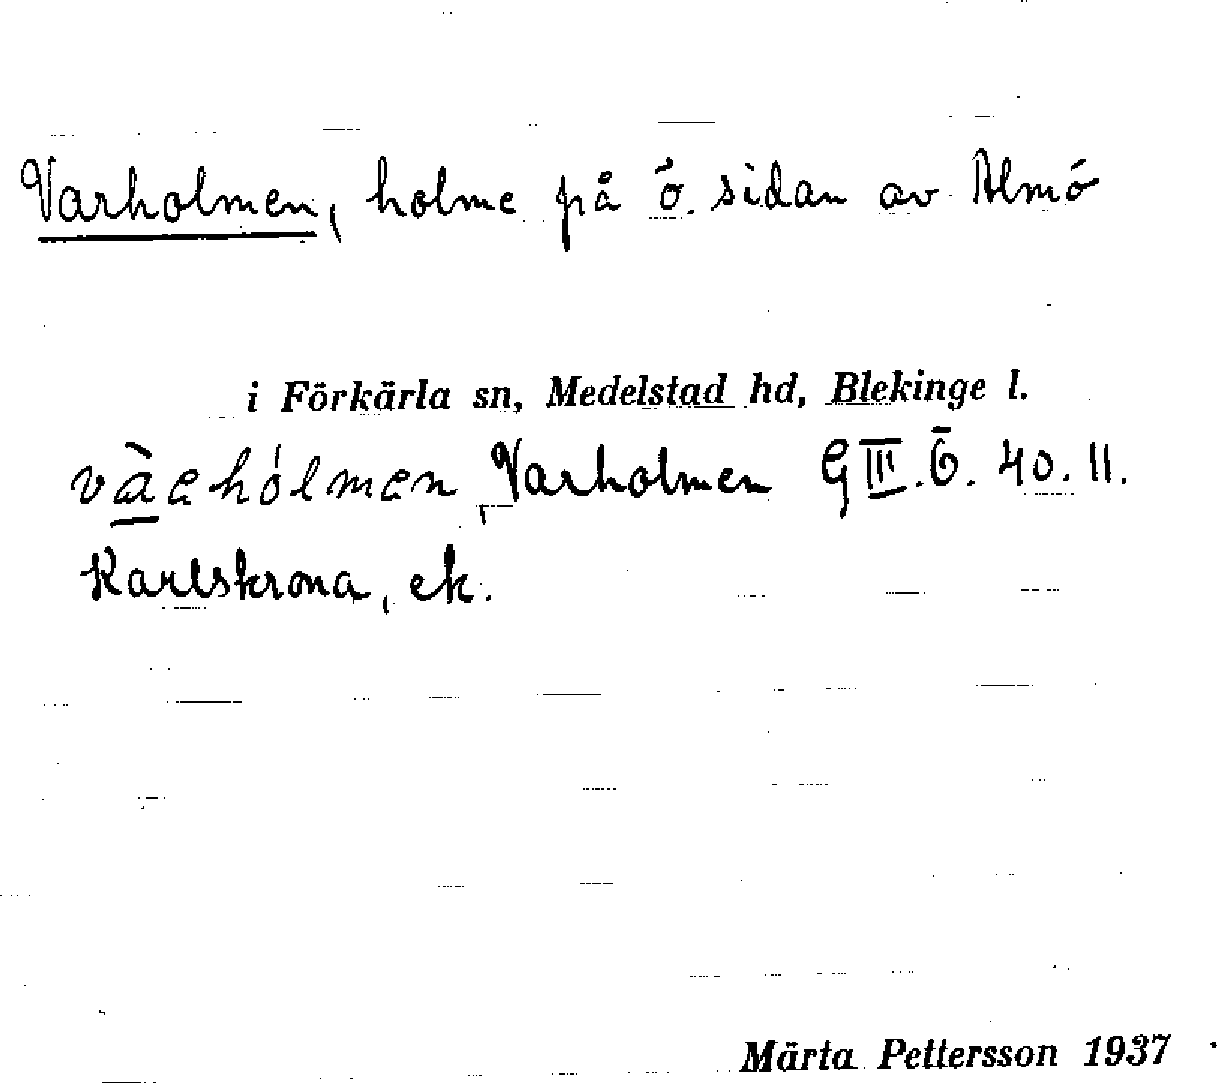 Varholmen, holme på ö. sidan av Almö
i Förkärla sn, Medelstad hd, Blekinge l.
vàrhólmen Varholmen G III. Ö. 40. 11.
Karlskrona, ek.
Märta Pettersson 1937